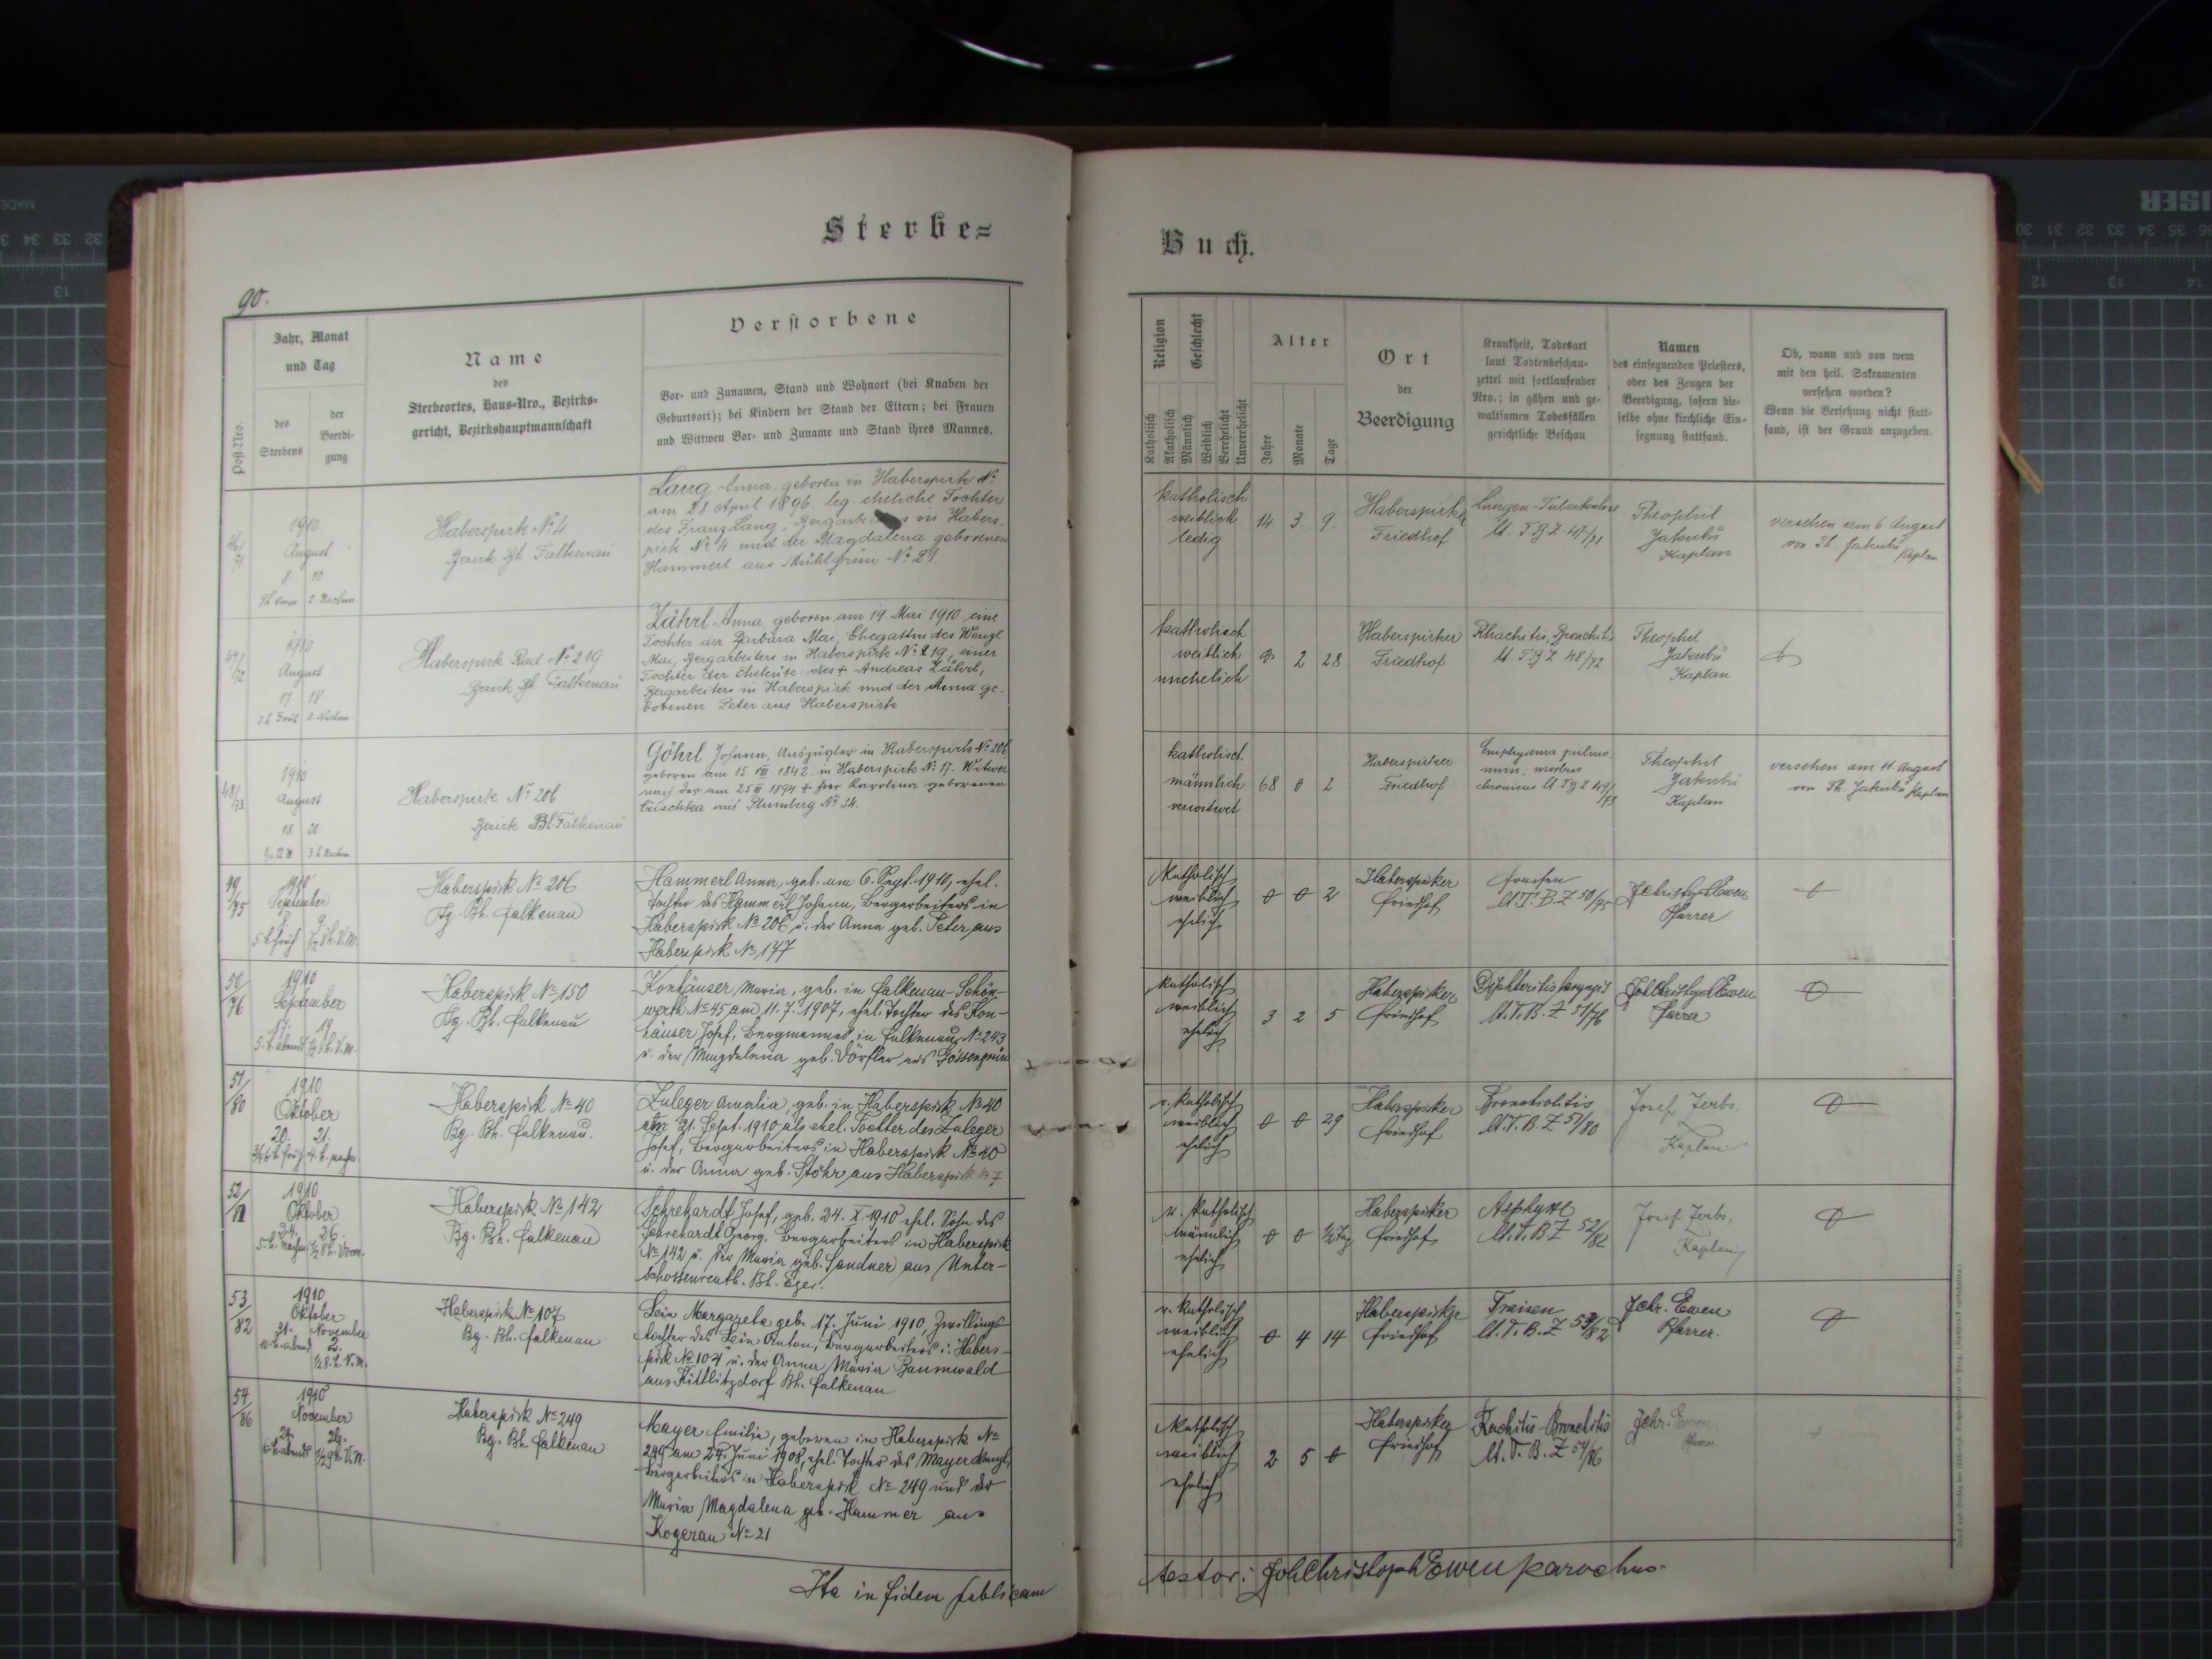 Sterbe=
Buch.
90.
Post-Nro.
Jahr, Monat
und Tag
des
Sterbens
der
Beerdi-
gung
Name
des
Sterbeortes, Haus=Nro., Bezirks=
gericht, Bezirkshauptmannschaft
Verstorbene
Vor- und Zunamen, Stand und Wohnort (bei Knaben der
Geburtsort); bei Kindern der Stand der Eltern; bei Frauen
und Wittwen Vor- und Zuname und Stand ihres Mannes.
Religion
Katholisch
Akatholisch
Geschlecht
Männlich
Weiblich
Verehelicht
Unverehelicht
Alter
Jahre
Monate
Tage
Ort
der
Beerdigung
Krankheit, Todesart
laut Todtenbeschau-
zettel mit fortlaufender
Nro.; in gähen und ge-
waltsamen Todesfällen
gerichtliche Beschau
Namen
des einsegnenden Priesters,
oder des Zeugen der
Beerdigung, sofern die-
selbe ohne kirchliche Ein-
segnung stattfand.
Ob, wann und von wem
mit den heil. Sakramenten
versehen worden?
Wenn die Versehung nicht statt-
fand, ist der Grund anzugeben.
46/
71
1910
August
8 10
2 Nachm
Haberspirk No 4
Bezirk Bh. Falkenau
Lang Anna geboren in Haberspirk No
am 28 April 1896 leg. eheliche Tochter
des Franz Lang, Bergarbeiters in Habers-
pirk No 4 und der Magdalena geborenen
Hammerl aus Mühlgrün No 21.
katholisch
weiblich
ledig
14 3 9
Haberspirker
Friedhof
Lungen-Tuberkulose
lt. T.B.Z. 47/71
Theophil
Kaplan
versehen am 6 August
von Th. Kaplan
47/
72
1910
August
17 18
2 h Früh 2 Nachm
Haberspirk Rad No 219
Bezirk Bh. Falkenau
Zährl Anna, geboren am 19. Mai 1910 eine
Tochter der Barbara Mai, Ehegattin des Wenzl
Mai, Bergarbeiters in Haberspirk No 219, einer
Tochter der Eheleute des + Andreas Zährl,
Bergarbeiters in Haberspirk und der Anna ge-
borenen Peter aus Haberspirk
katholisch
weiblich
unehelich
0 2 28
Haberspirker
Friedhof
Rhachitis, Bronchitis
lt. T.B.Z. 48/72
Theophil
Kaplan
48/
73
1910
August
18 20
3 h Nachm
Haberspirk No 206
Bezirk Bh. Falkenau
Göhrl Johann, Auszügler in Haberspirk No 206
geboren am 15 VIII 1842 in Haberspirk No 17. Witwer
nach der am 25 III 1894 + hier Karolina geborenen
aus Plumberg No 34.
katholisch
männlich
verwitwet
68 0 2
Haberspirker
Friedhof
Emphysema pulmo
num, morbus
chronicus lt T.B.Z 49/73
Theophil
Kaplan
versehen am 11 August
von Th. Kaplan
49/
75
1910
September
8 9
5 h früh 1/2 8 h. V.M.
Haberspirk No 206
Bg. Bh. Falkenau
Hammerl Anna, geb. am 6. Sept. 1910, ehel.
Tochter des Hammerl Johann, Bergarbeiters in
Haberspirk No 206 u. der Anna geb. Peter aus
Haberspirk No 177
katholisch
weiblich
ehelich
0 0 2
Haberspirker
Friedhof
Fraisen
lt. T.B.Z 50/75
Joh Christoph Ewen
Pfarrer
50/
76
1910
September
17 19
5 h. abends 1/2 8 h. V.M.
Haberspirk No 150
Bg. Bh. Falkenau
Konhäuser Maria, geb. in Falkenau-Schön-
werth No 45 am 11. 7. 1907, ehel. Tochter des Kon-
häuser Josef, Bergmannes in Falkenau No 243
u. der Magdalena geb. Dörfler aus Gossengrün
katholisch
weiblich
ehelich
3 2 5
Haberspirker
Friedhof
Diphteritis laryngis
lt. T.B.Z 51/76
Joh Christoph Ewen
Pfarrer
51/
80
1910
Oktober
20. 21.
Haberspirk No 40
Bg. Bh. Falkenau.
Zuleger Amalia, geb. in Haberspirk No 40
am 21. Sept. 1910 als ehel. Tochter des Zuleger
Josef, Bergarbeiters in Haberspirk No 40
u. der Anna geb. Stöhr aus Haberspirk No 7
r. katholisch
weiblich
ehelich
0 0 29
Haberspirker
Friedhof
Bronchiolitis
lt. T.B.Z 51/80
Josef Jerbs,
Kaplan
52/
81
1910
Oktober
24. 26.
5 h. nachm. 1/2 8 h. Vorm.
Haberspirk No 142
Bg. Bh. Falkenau
Schrehardt Josef, geb. 24. X. 1910 ehel. Sohn des
Schrehardt Georg, Bergarbeiters in Haberspirk
No 142 u. der Maria geb. Sandner aus Unter-
schossenreuth. Bh. Eger.
r. katholisch
männlich
ehelich
0 0 1/2 Tag
Haberspirker
Friedhof
Asphyxie
lt. T.B.Z 52/82
Josef Jerbs,
Kaplan
53/
82
1910
Oktober
31. November
2.
10 h. abend 1/2 8. h. V.M.
Haberspirk No 107
Bg. Bh. Falkenau
Lein Margareta geb. 17. Juni 1910. Zwillings-
tochter des Lein Anton, Bergarbeiters i. Habers-
pirk No 107 u. der Anna Maria Baumwald
aus Kittlitzdorf Bh. Falkenau
r. katholisch
weiblich
ehelich
0 4 14
Haberspirker
Friedhof
Fraisen
lt. T.B.Z 53/82
Joh. Ewen
Pfarrer.
54/
86
1910
November
24. 26.
6 h abends 1/2 9 h. V.M.
Haberspirk No 249
Bg. Bh. Falkenau
Mayer Emilia, geboren in Haberspirk No
249 am 24. Juni 1908, ehel. Tochter des Mayer Wenzl,
Bergarbeiters in Haberspirk No 249 und der
Maria Magdalena geb. Hammer aus
Kogerau No 21
katholisch
weiblich
ehelich
2 5 0
Haberspirker
Friedhof
Rachitis Bronchitis
lt. T.B.Z 54/86
Joh. Ewen
Pfarrer
Ita in fidem publicam
testor: Joh Christoph Ewen parochus.